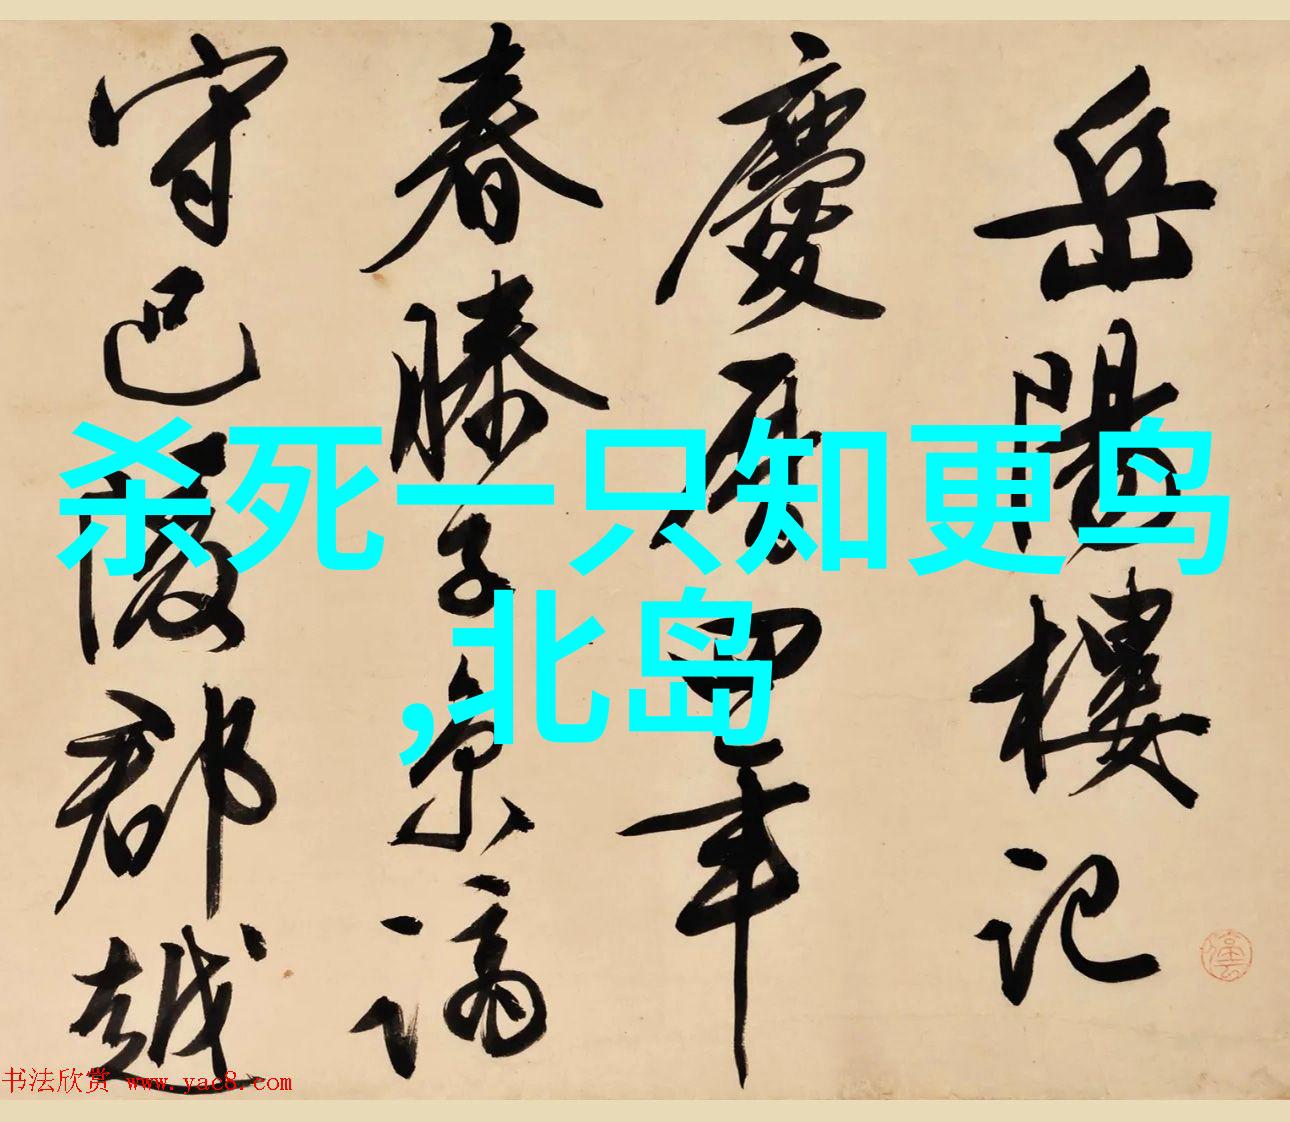 岳陽樓記
慶曆四年
春滕子京謫
守巴陵郡越
杀死一只知更鸟
,北岛
书法欣赏 www.yac8.com